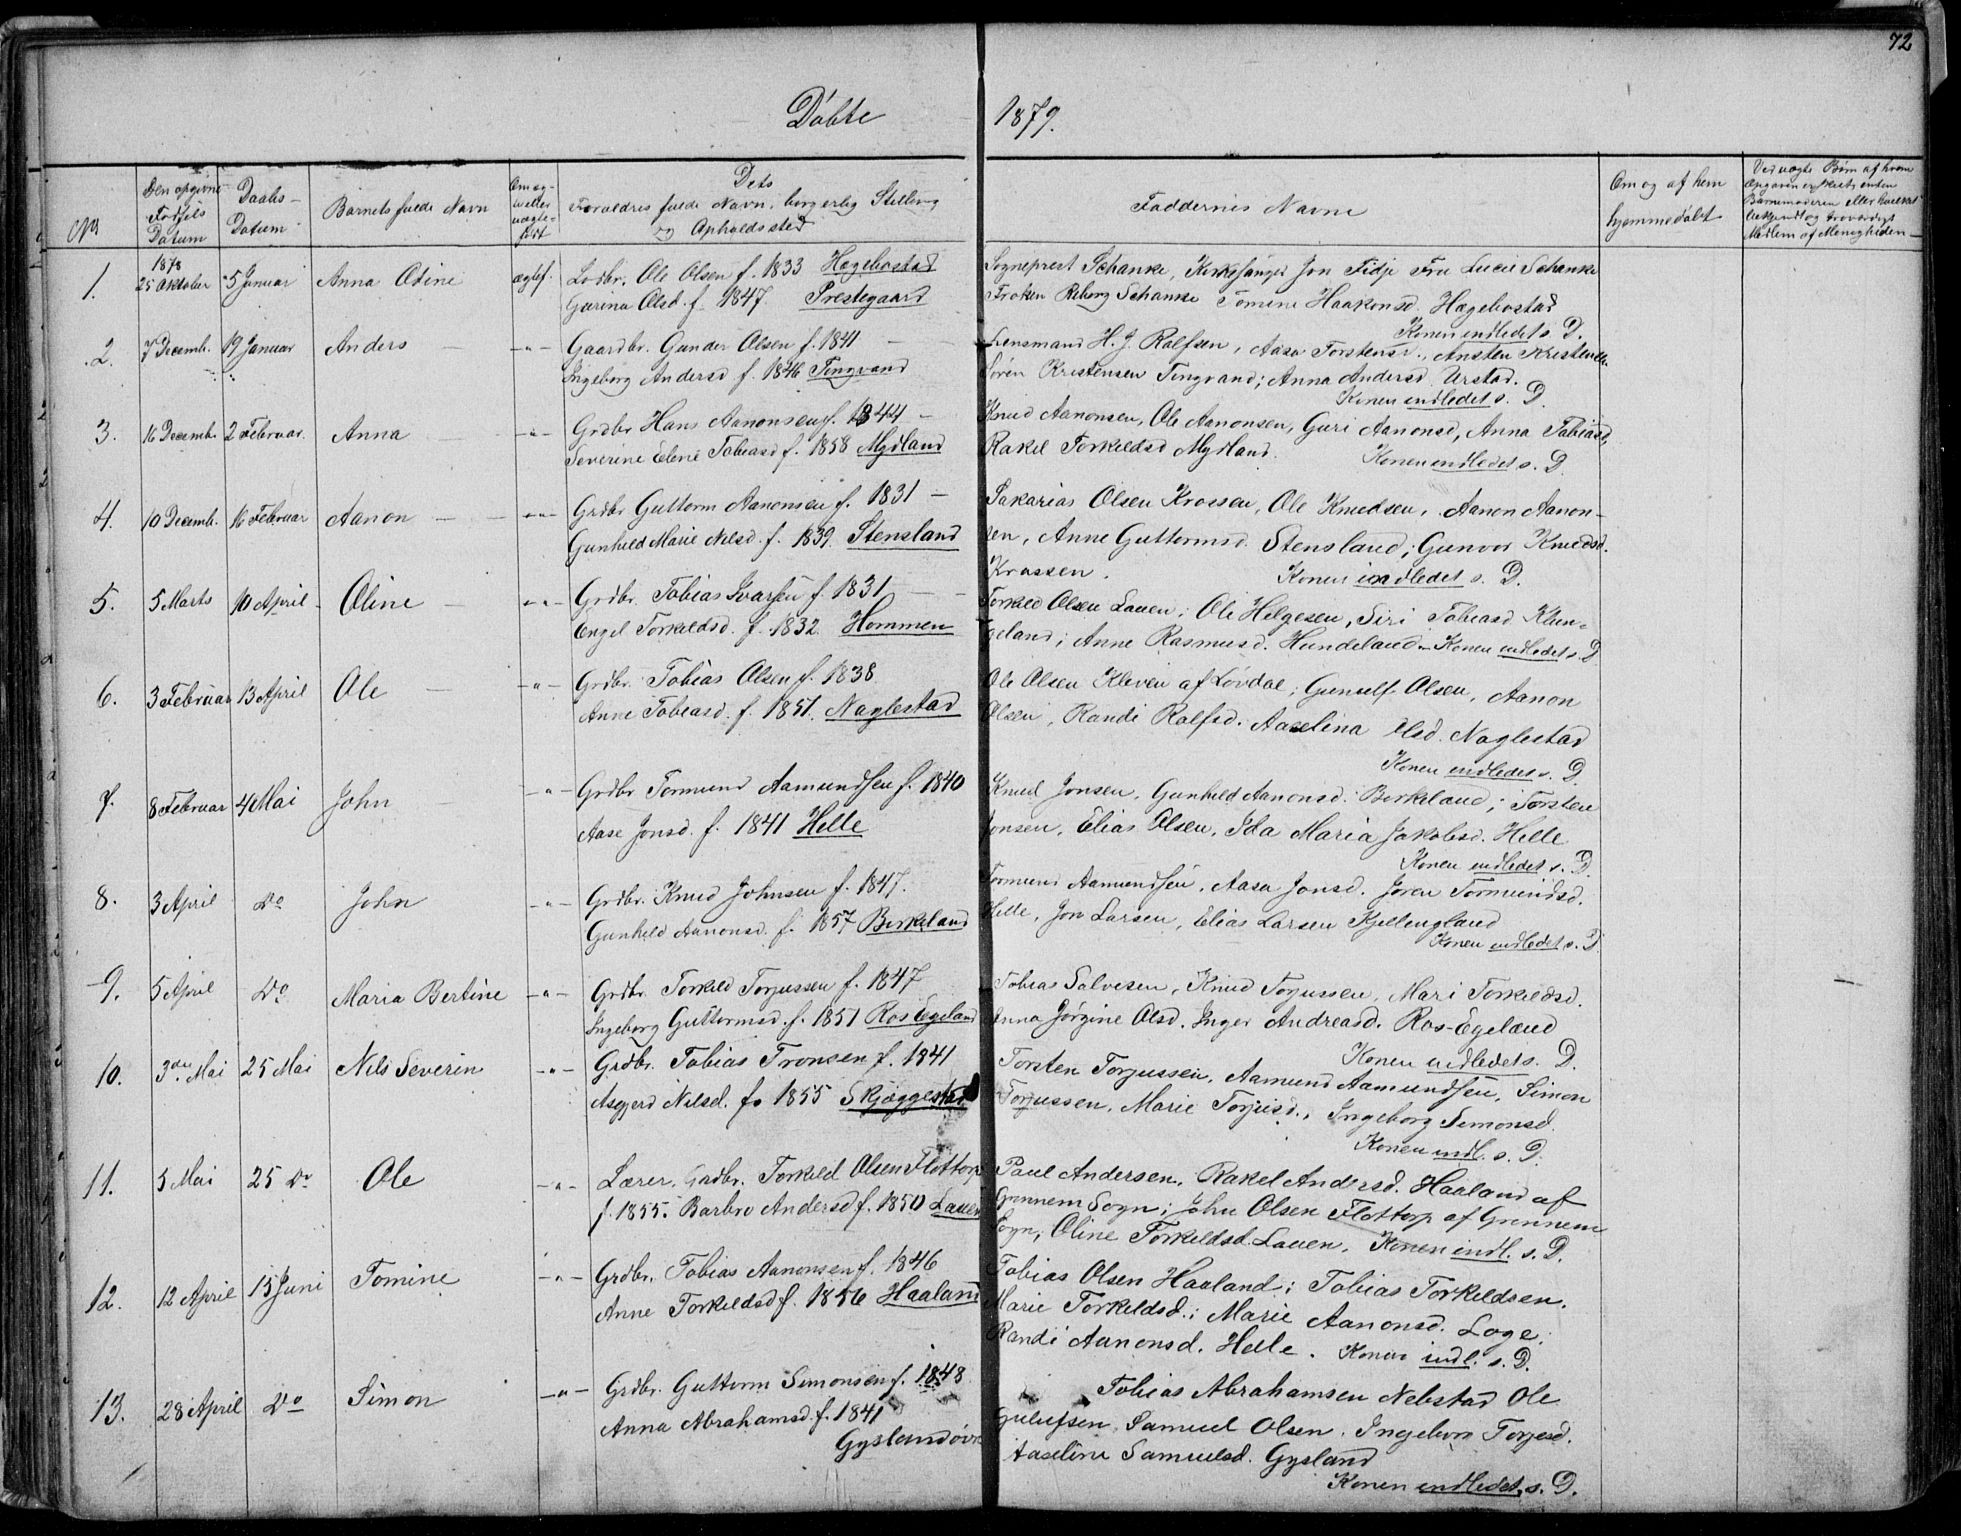 72
Døbte 1879.
No
Den opgivne Fødsels Datum
Daabs-Datum
Barnets fulde Navn
Om ægte eller uægte født
Dets Forældres fulde Navn, borgerlig Stilling og Opholdssted
Faddernes Navne
Om og af hvem hjemmedøbt
Ved uægte Børn af hvem Opgaven er skeet, enten Barnemoderen eller hvilket bekjendt og troværdigt Medlem af Menigheden
1. 1878 25 Oktober 5 Januar Anna Odine ægtef. Lodbr. Ole Olsen f. 1833 Hægebostad
Gurina Olsd. f. 1847. Prestegaard
Sogneprest Schanke, Kirkesanger Jon Fidje Fru Lucie Schanke
Frøken Schanke Tomine Haakonsd. Hægebostad
Konen indledet s. D.
2. 7 Decemb. 19 Januar Anders -"- Gaardbr. Gunder Olsen f. 1841
Ingeborg Andersd f. 1846 Tingvand
Lensmand H. J. Rolfsen, Aasa Torstensd., Ansten Kristensen
Søren Kristensen Tingvand; Anna Andersd. Urstad.
Konen indledet s. D.
3. 16 Decemb. 2 Februar. Anna -"- Grdbr Hans Aanonsen f. 1844
Severine Elene Tobiasd f. 1858 Mydland
Knud Aanonsen, Ole Aanonsen, Guri Aanonsd, Anna Tobiasd,
Rakel Torkeldsd Mydland.
Konen indledet s. D.
4. 10 Decemb. 16 Februar Aanon -"- Grdbr Guttorm Aanonsen f. 1831
Gunhild Marie Nilsd. f. 1839. Stensland
Sakarias Olsen Krossen, Ole Knudsen, Aanon Aanon-
sen, Anne Guttormsd. Stensland; Gunvor Knudsd.
Krossen.
Konen indledet s. D.
5. 5 Marts 10 April Oline -"- Grdbr. Tobias Ivarsen f. 1831
Engel Torkeldsd. f. 1832. Hommen
Torked Olsen Lauen; Ole Helgesen, Siri Tobiasd Klun-
geland; Anne Rasmusd. Hundeland. Konen indledet s. D
6. 3 Februar 13 April Ole -"- Grdbr. Tobias Olsen f. 1838
Anne Tobiasd. f. 1851. Naglestad
Ole Olsen Kleven af Løvdal; Gunulf Olsen, Aanon
Olsen, Randi Rolfsd. Aaselina Olsd. Naglestad
Konen indledet s. D.
7. 8 Februar 4 Mai John -"- Grdbr Tormund Aamundsen f. 1840
Aase Jonsd. f. 1841 Helle
Knud Jonsen, Gunhild Aanonsd. Birkeland; Torsten
Jonsen, Elias Olsen, Ida Maria Jakobsd. Helle
Konen indledet s. D.
8. 3 April Do John -"- Grdbr. Knud Johnsen f. 1847.
Gunhild Aanonsd. f. 1857 Birkeland
Tormund Aamundsen, Aasa Jonsd. Joren Tormundsd.
Helle, Jon Larsen, Elias Larsen Kjellengland
Konen indledet s. D.
9. 5 April Do Maria Bertine -"- Grdbr. Torkild Torjussen f. 1847
Ingeborg Guttormsd. f. 1851 Ros Egeland
Tobias Salvesen, Knud Torjussen, Mari Torkildsd.
Anna Jørgine Olsd. Inger Andreasd. Ros-Egeland
Konen indledet s. D.
10. 3die Mai 25 Mai Nils Severin -"- Grdbr. Tobias Tronsen f. 1841
Asgjerd Nilsd. f. 1855 Skjæggestad
Torsten Torjussen, Aamund Aamundsen, Simon
Torjussen, Marie Torjusd., Ingeborg Simonsd.
Konen indl. s. D.
11. 5 Mai 25 Do Ole -"- Lærer, Grdbr. Torkeld Olsen Flottorp
f. 1855. Barbro Andersd f. 1850 Lauen
Paul Andersen, Rakel Andersd. Haaland af
Grinnem Sogn; John Olsen Flottorp af Grinnem
Sogn, Oline Torkeldsd. Lauen. Konen indl. s. D.
12. 12 April 15 Juni Tomine -"- Grdbr. Tobias Aanonsen f. 1846
Anne Torkeldsd f. 1856 Haaland
Tobias Olsen Haaland; Tobias Torkeldsen.
Marie Torkeldsd.; Marie Aanonsd. Loge;
Randi Aanonsd. Helle. Konen indl. s. D.
13. 28 April Do Simon -"- Grdbr. Guttorm Simonsen f. 1848
Anna Abrahamsd. f. 1841
Gysland øvre
Tobias Abrahamsen Nebstad Ole
Samuel Olsen. Ingeborg Torjesd.
Aaseline Samuelsd. Gysland
Konen indledet s. D.